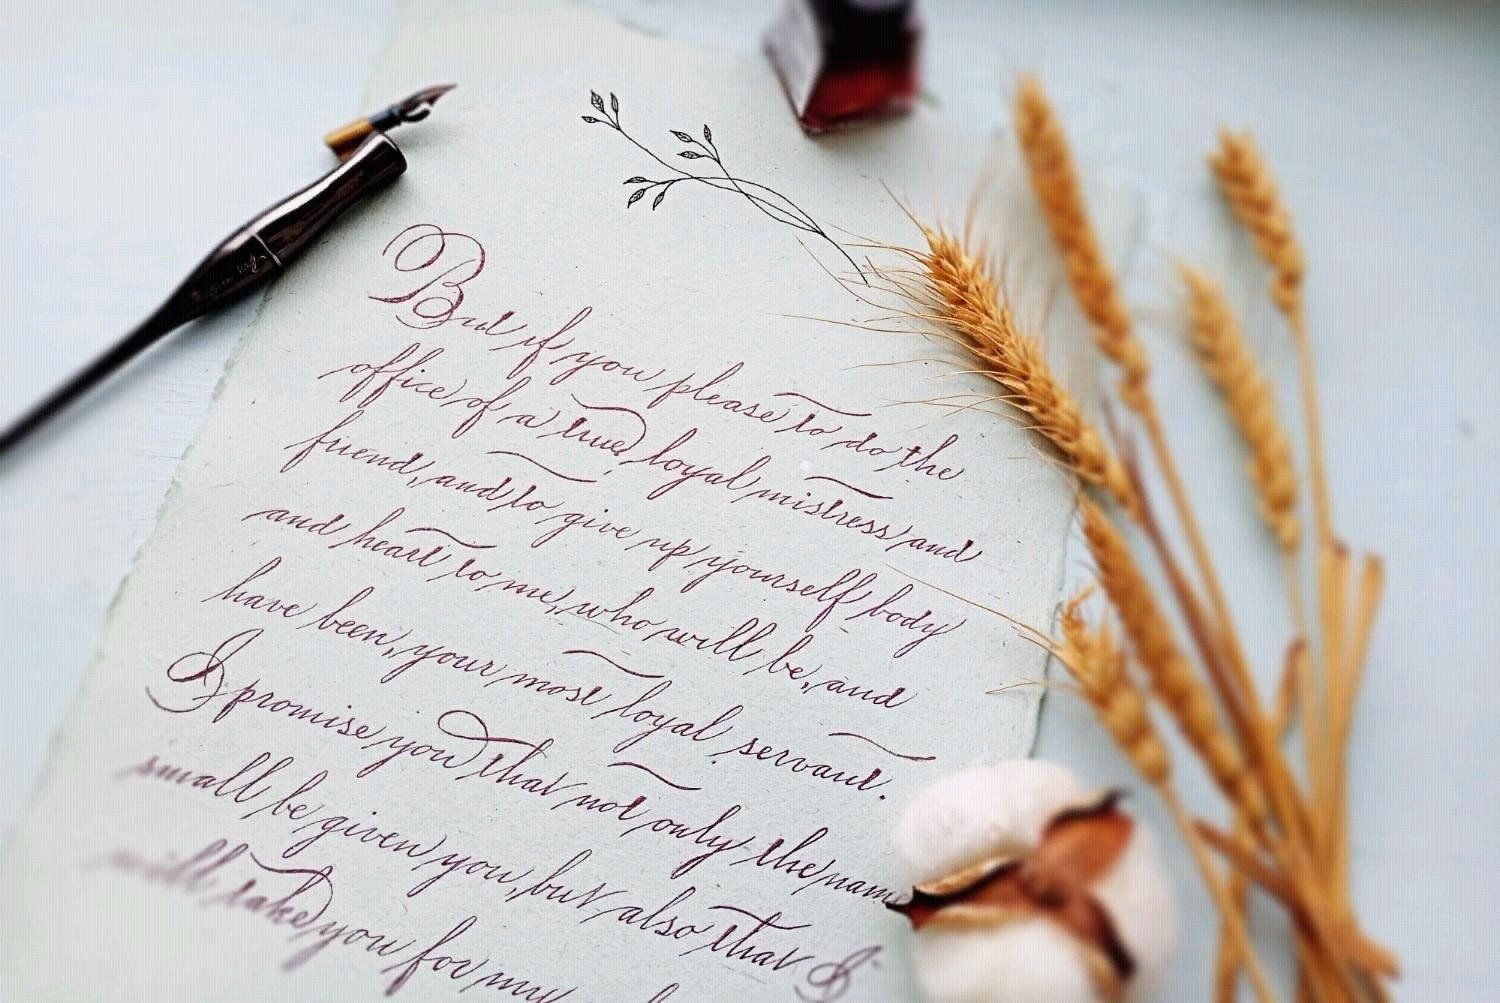 But if you please to do the
office of a true, loyal mistress and
friend, and to give up yourself body
and heart to me, who will be, and
have been, your most loyal servant.
I promise you that not only the name
small be given you, but also that I
will take you for my